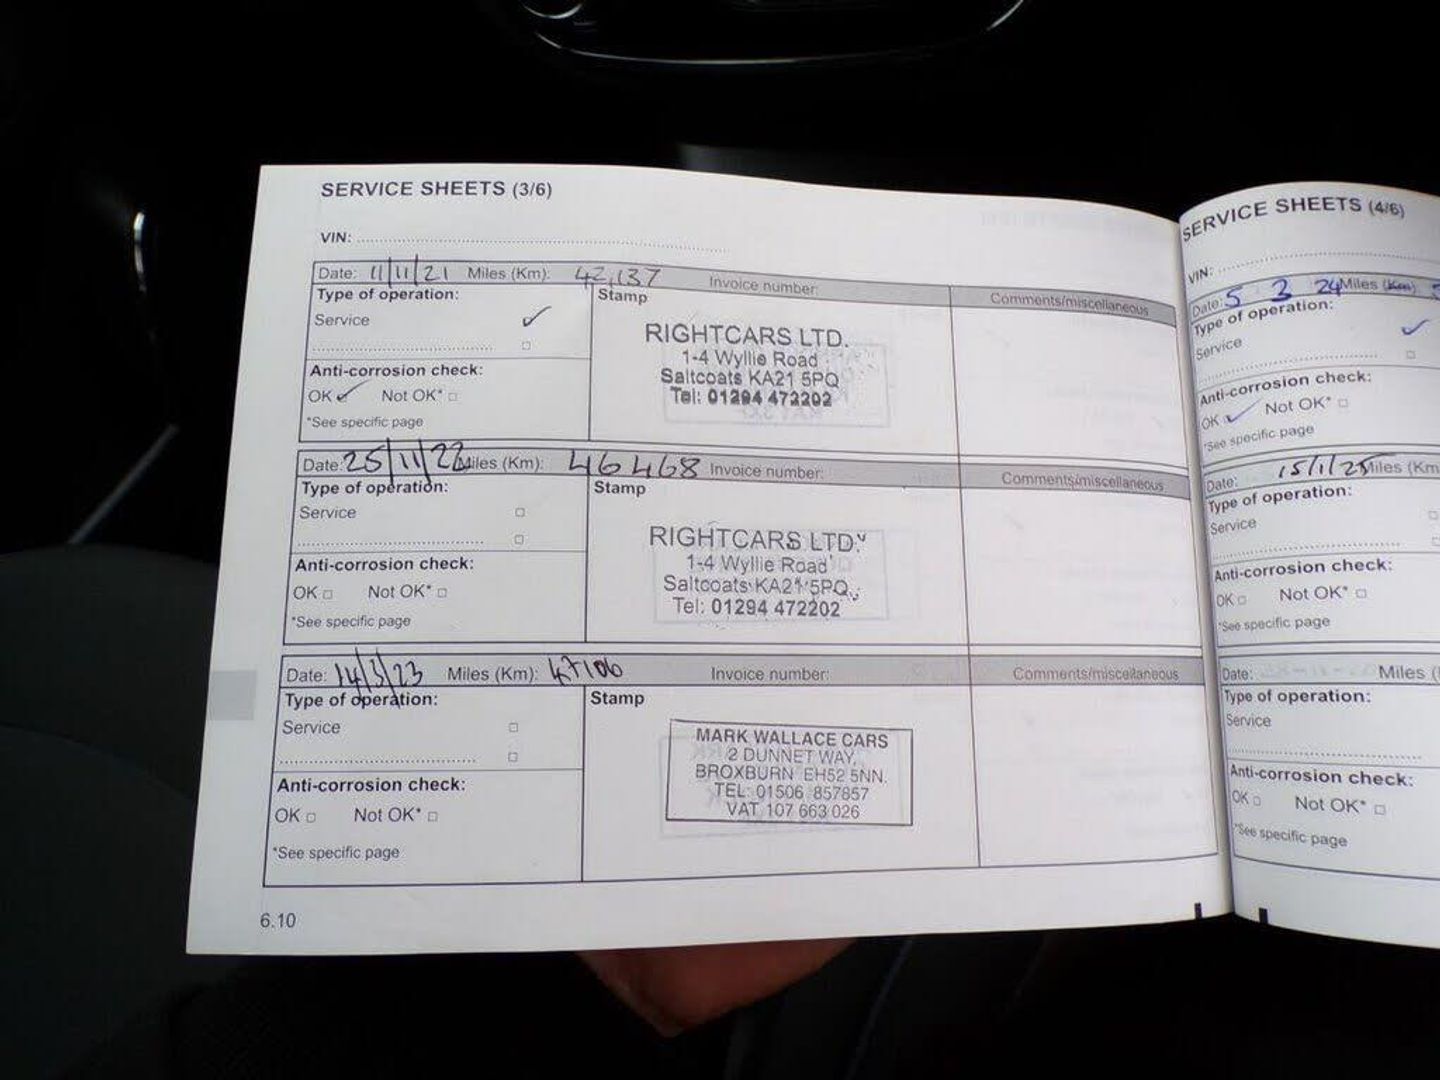 SERVICE SHEETS (3/6)
VIN:
Date: 11/11/21 Miles (Km): 42,137 Invoice number: Comments/miscellaneous
Type of operation: Stamp
Service
RIGHTCARS LTD.
1-4 Wyllie Road
Saltcoats KA21 5PQ
Tel: 01294 472202
Anti-corrosion check:
OK Not OK*
*See specific page
Date: 25/11/22 Miles (Km): 46468 Invoice number: Comments/miscellaneous
Type of operation: Stamp
Service
RIGHTCARS LTD.
1-4 Wyllie Road
Saltcoats KA21 5PQ
Tel: 01294 472202
Anti-corrosion check:
OK Not OK*
*See specific page
Date: 14/3/23 Miles (Km): 47106 Invoice number: Comments/miscellaneous
Type of operation: Stamp
Service
MARK WALLACE CARS
2 DUNNET WAY,
BROXBURN EH52 5NN.
TEL: 01506 857857
VAT 107 663 026
Anti-corrosion check:
OK Not OK*
*See specific page
6.10
SERVICE SHEETS (4/6)
VIN:
Date: 5 3 24 Miles (Km)
Type of operation:
Service
Anti-corrosion check:
OK Not OK*
*See specific page
Date: 15/1/25 Miles (Km
Type of operation:
Service
Anti-corrosion check:
OK Not OK*
*See specific page
Date: Miles (
Type of operation:
Service
Anti-corrosion check:
OK Not OK*
*See specific page